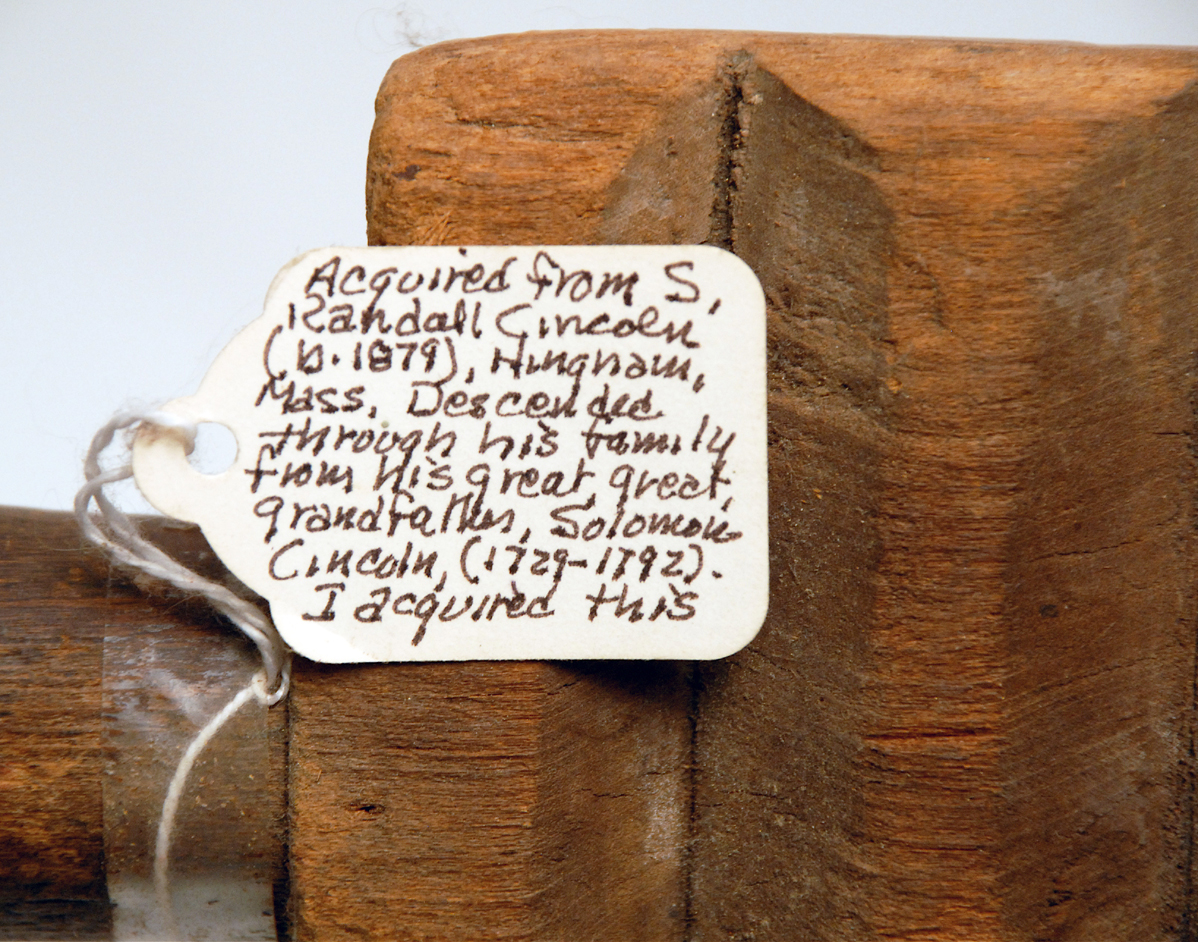 Acquired from S.
Randall Lincoln
(b. 1879), Hingham,
Mass. Descended
through his family
from his great, great,
grandfather, Solomon
Lincoln, (1729-1792).
I acquired this